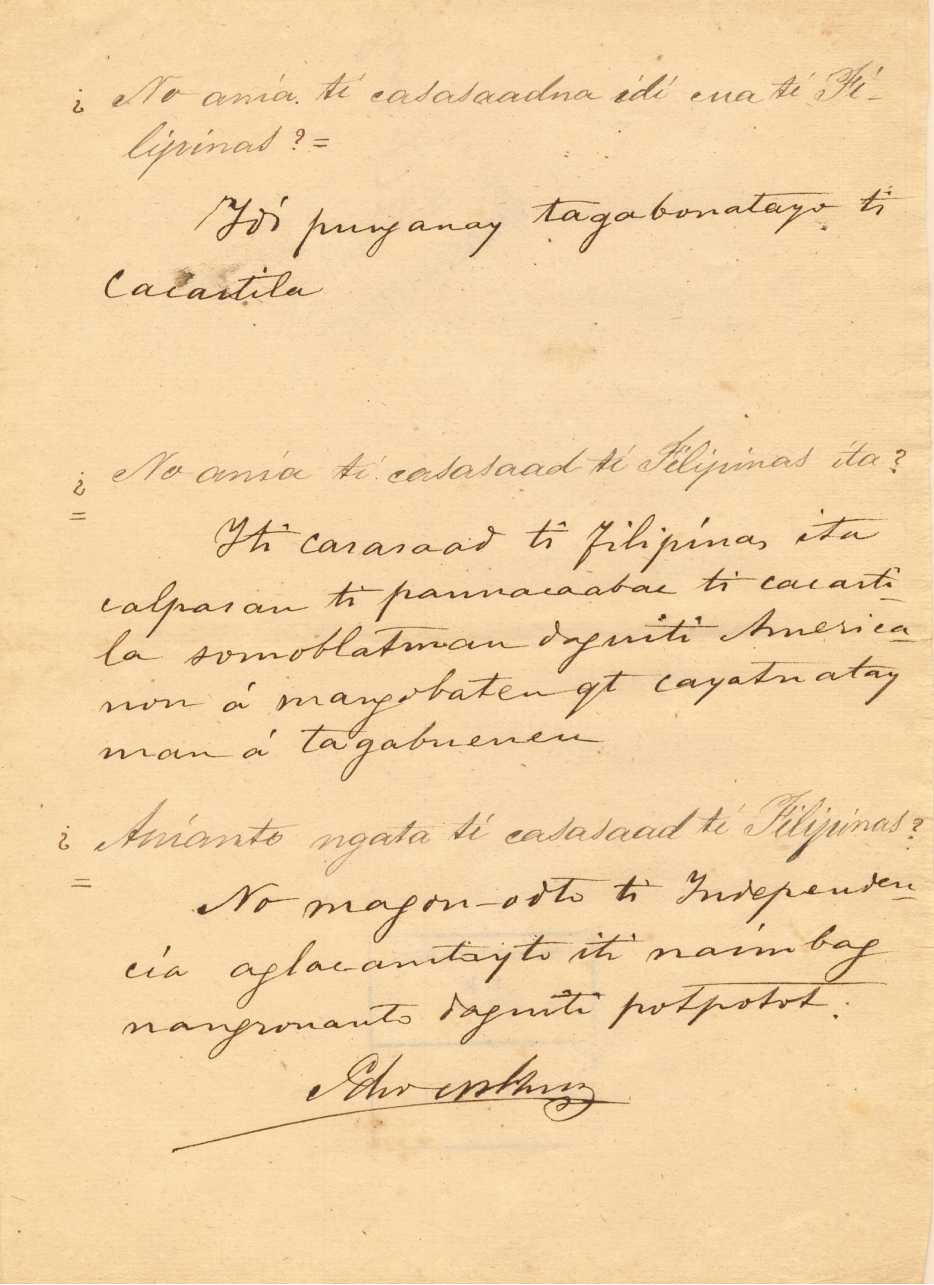 ¿ No ania. ti casasaadna idi cua ti Fi-
lipinas? =
Idi punganay tagabonatayo ti
Cacastila
¿ No ania ti casasaad ti Filipinas ita?
=
Iti casasaad ti Filipinas ita
calpasan ti pannacaabac ti cacasti-
la somoblatman dagniti America
non á mangobaten qt cayatnatay
man á tagabuenen
¿ Anianto ngata ti casasaad ti Filipinas?
=
No magon-odto ti Independen-
cia aglacamtayto iti naimbag
nangronanto dagniti potpotot.